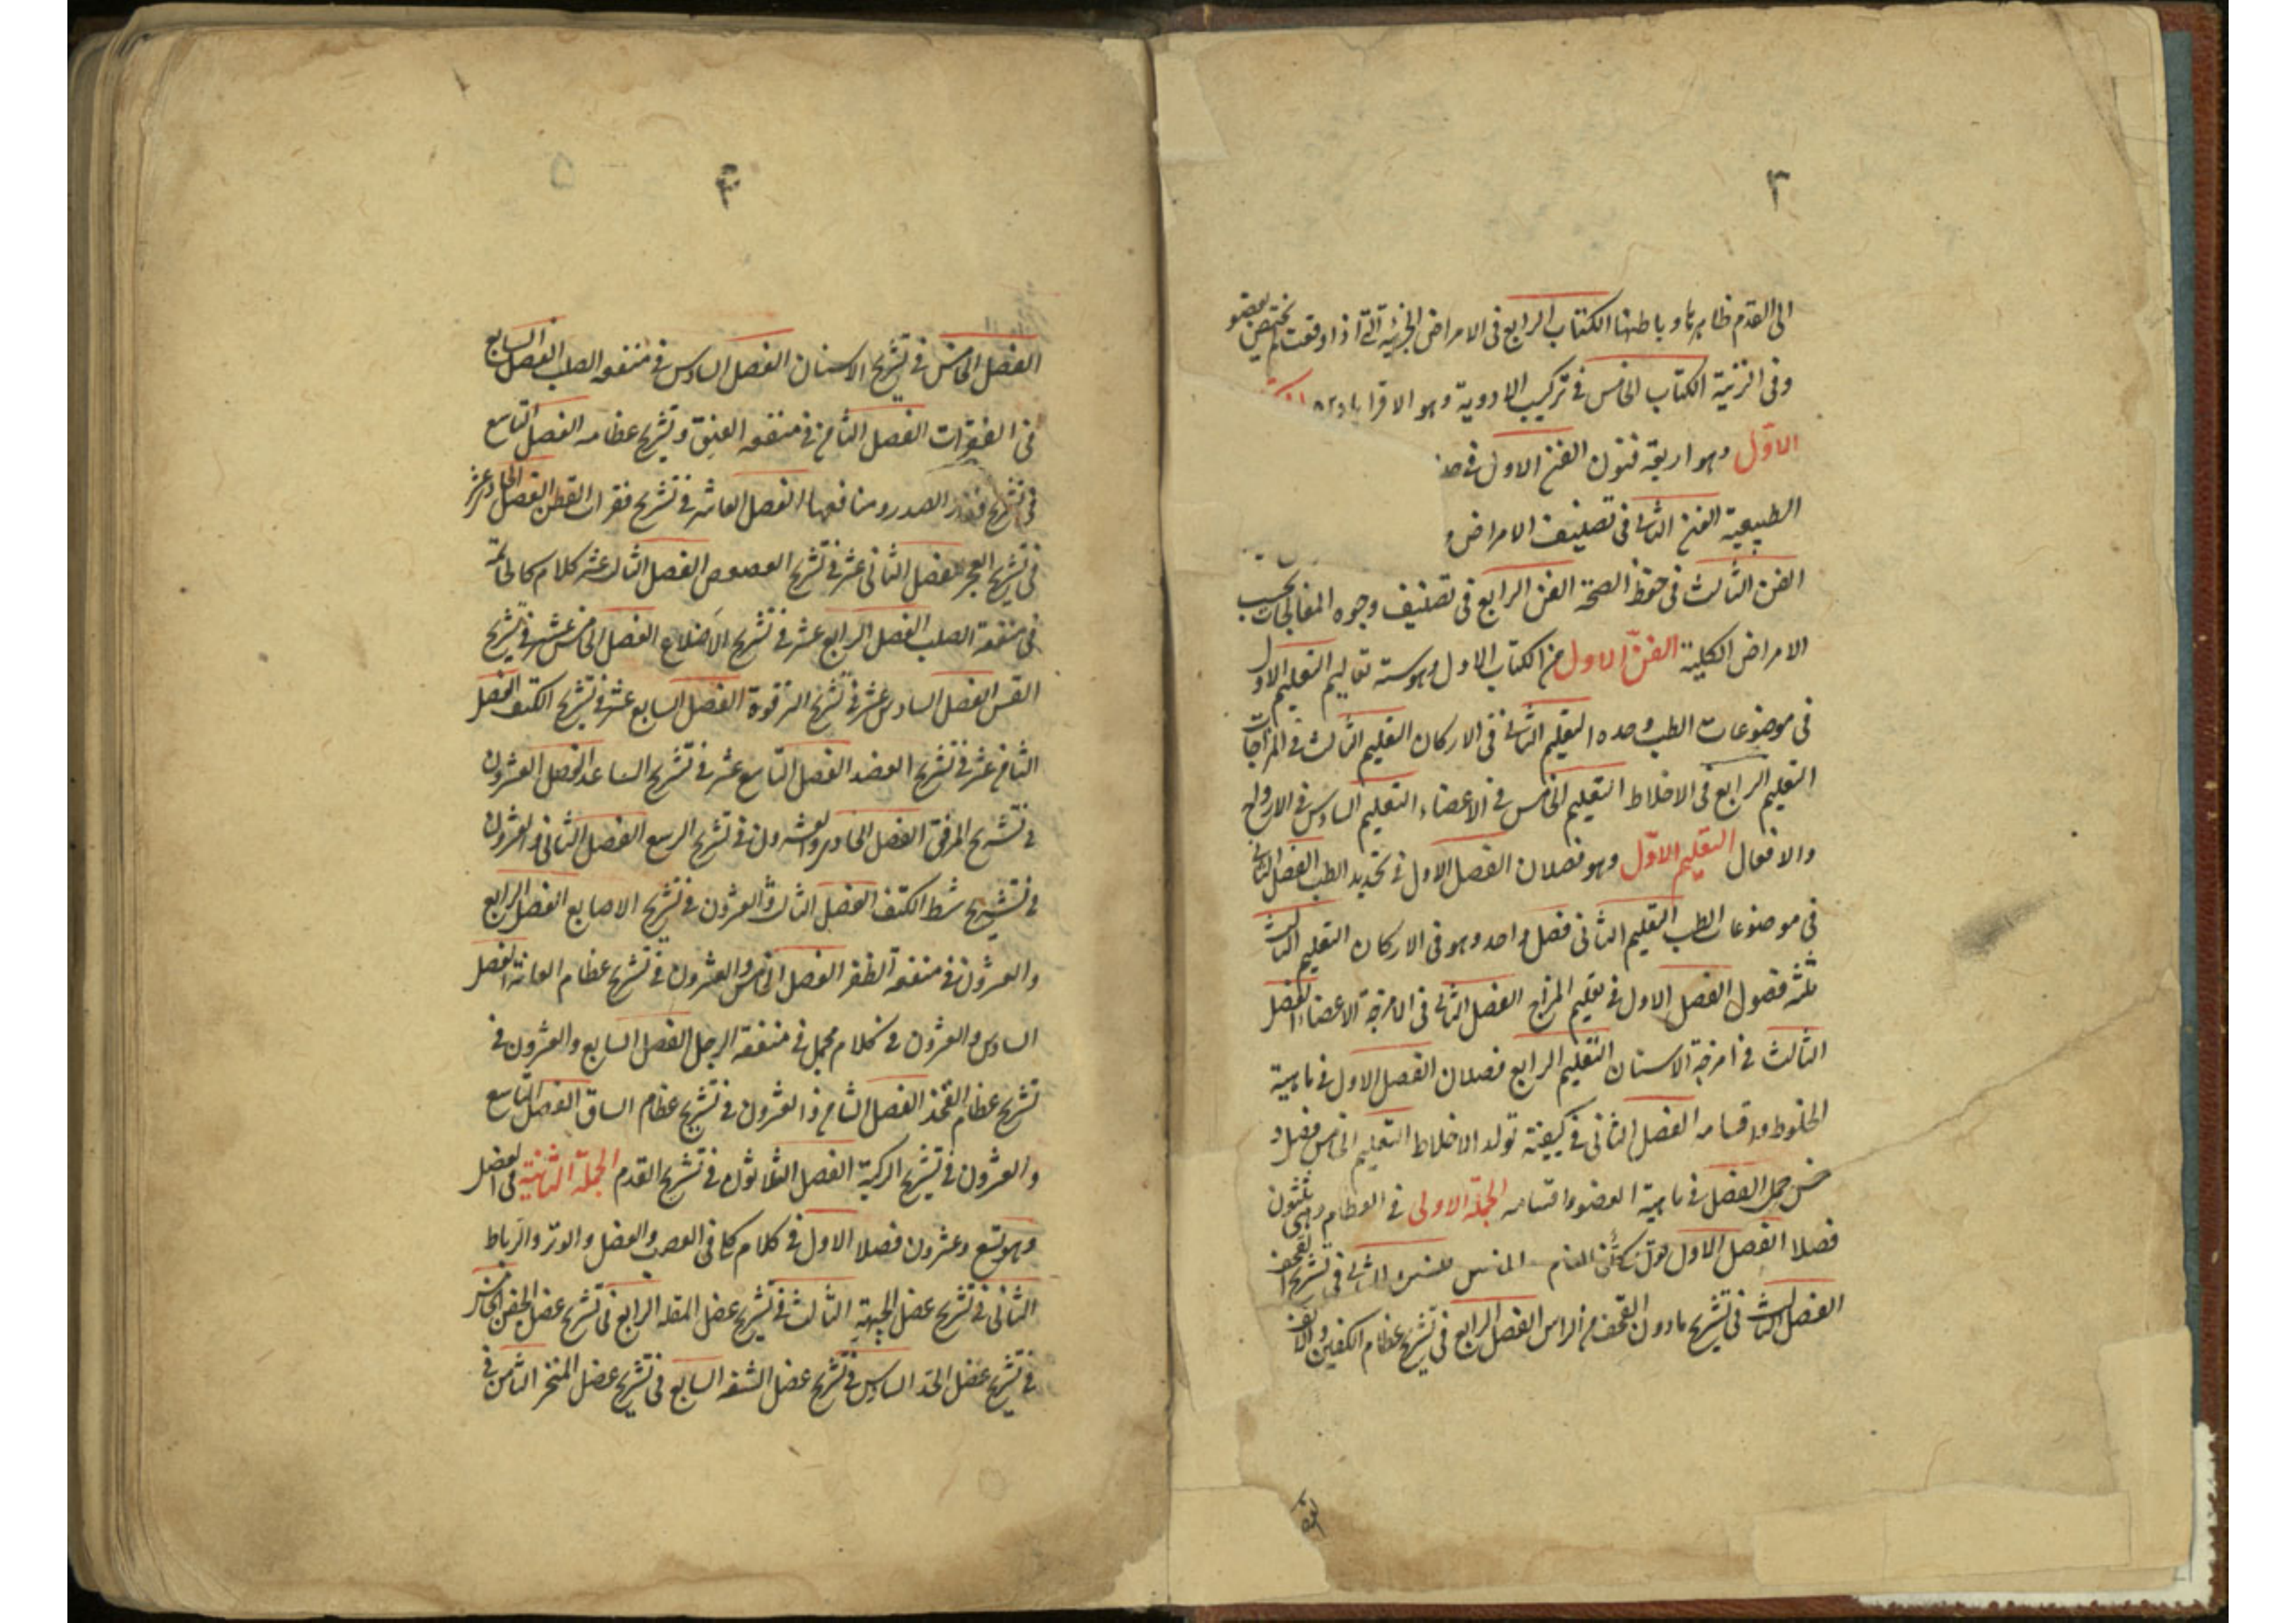 ٣
الى القدم ظاهرها و باطنها الكتاب الرابع فى الامراض الجزئية التى اذا وقعت لم تختص بعضو
وفى الزينة الكتاب الخامس فى تركيب الادوية وهو الاقرابادين
الاوّل وهو اربعة فنون الفن الاول فى حد
الطبيعية الفن الثانى فى تصنيف الامراض و
الفن الثالث فى حفظ الصحة الفن الرابع فى تصنيف وجوه المعالجات بحسب
الامراض الكلية الفنّ الاول من الكتاب الاول وهو ستة تعاليم التعليم الاول
فى موضوعات الطب وحده التعليم الثانى فى الاركان التعليم الثالث فى المزاجات
التعليم الرابع فى الاخلاط التعليم الخامس فى الاعضاء التعليم السادس فى الارواح
والافعال التعليم الاوّل وهو فصلان الفصل الاول فى تحديد الطب الفصل الثانى
فى موضوعات الطب التعليم الثانى فصل واحد وهو فى الاركان التعليم الثالث
ثلثة فصول الفصل الاول فى تعليم المزاج الفصل الثانى فى الامزجة الاعضاء الفصل
الثالث فى امزجة الاسنان التعليم الرابع فصلان الفصل الاول فى ماهية
الخلوط واقسامه الفصل الثانى فى كيفية تولد الاخلاط التعليم الخامس فصل و
خمس جمل الفصل فى ماهية العضو واقسامه الجملة الاولى فى العظام وهى ثلثون
فصلا الفصل الاول الثانى فى تشريح القحف
الفصل الثالث فى تشريح مادون القحف من الراس الفصل الرابع فى تشريح عظام الكفين والانف
الفصل
٤
٥
الفصل الخامس فى تشريح الاسنان الفصل السادس فى منفعه الصلب الفصل السابع
فى الفقرات الفصل الثامن فى منفعه العنق و تشريح عظامه الفصل التاسع
فى تشريح فقار الصدر ومنافعها الفصل العاشر فى تشريح فقرات القطن الفصل الحاد عشر
فى تشريح العجز الفصل الثانى عشر فى تشريح العصوص الفصل الثالث عشر كلام كالخاتمة
فى منفعة الصلب الفصل الرابع عشر فى تشريح الاضلاع الفصل الخامس عشر فى تشريح
القس الفصل السادس عشر فى تشريح الترقوة الفصل السابع عشر فى تشريح الكتف الفصل
الثامن عشر فى تشريح العضد الفصل التاسع عشر فى تشريح الساعد الفصل العشرون
فى تشريح المرفق الفصل الحادى والعشرون فى تشريح الرسغ الفصل الثانى والعشرون
فى تشريح مشط الكتف الفصل الثالث والعشرون فى تشريح الاصابع الفصل الرابع
والعشرون فى منفعة الظفر الفصل الخامس والعشرون فى تشريح عظام العانة الفصل
السادس والعشرون فى كلام مجمل فى منفعه الرجل الفصل السابع والعشرون فى
تشريح عظام الفخذ الفصل الثامن والعشرون فى تشريح عظام الساق الفصل التاسع
والعشرون فى تشريح الركبة الفصل الثلاثون فى تشريح القدم الجملة الثانية فى العضل
وهو تسع وعشرون فصلا الاول فى كلام كلى فى العصب والعضل والوتر والرباط
الثانى فى تشريح عضل الجبهة الثالث فى تشريح عضل المقله الرابع فى تشريح عضل الجفن الخامس
فى تشريح عضل الخد السادس فى تشريح عضل الشفه السابع فى تشريح عضل المنخر الثامن فى